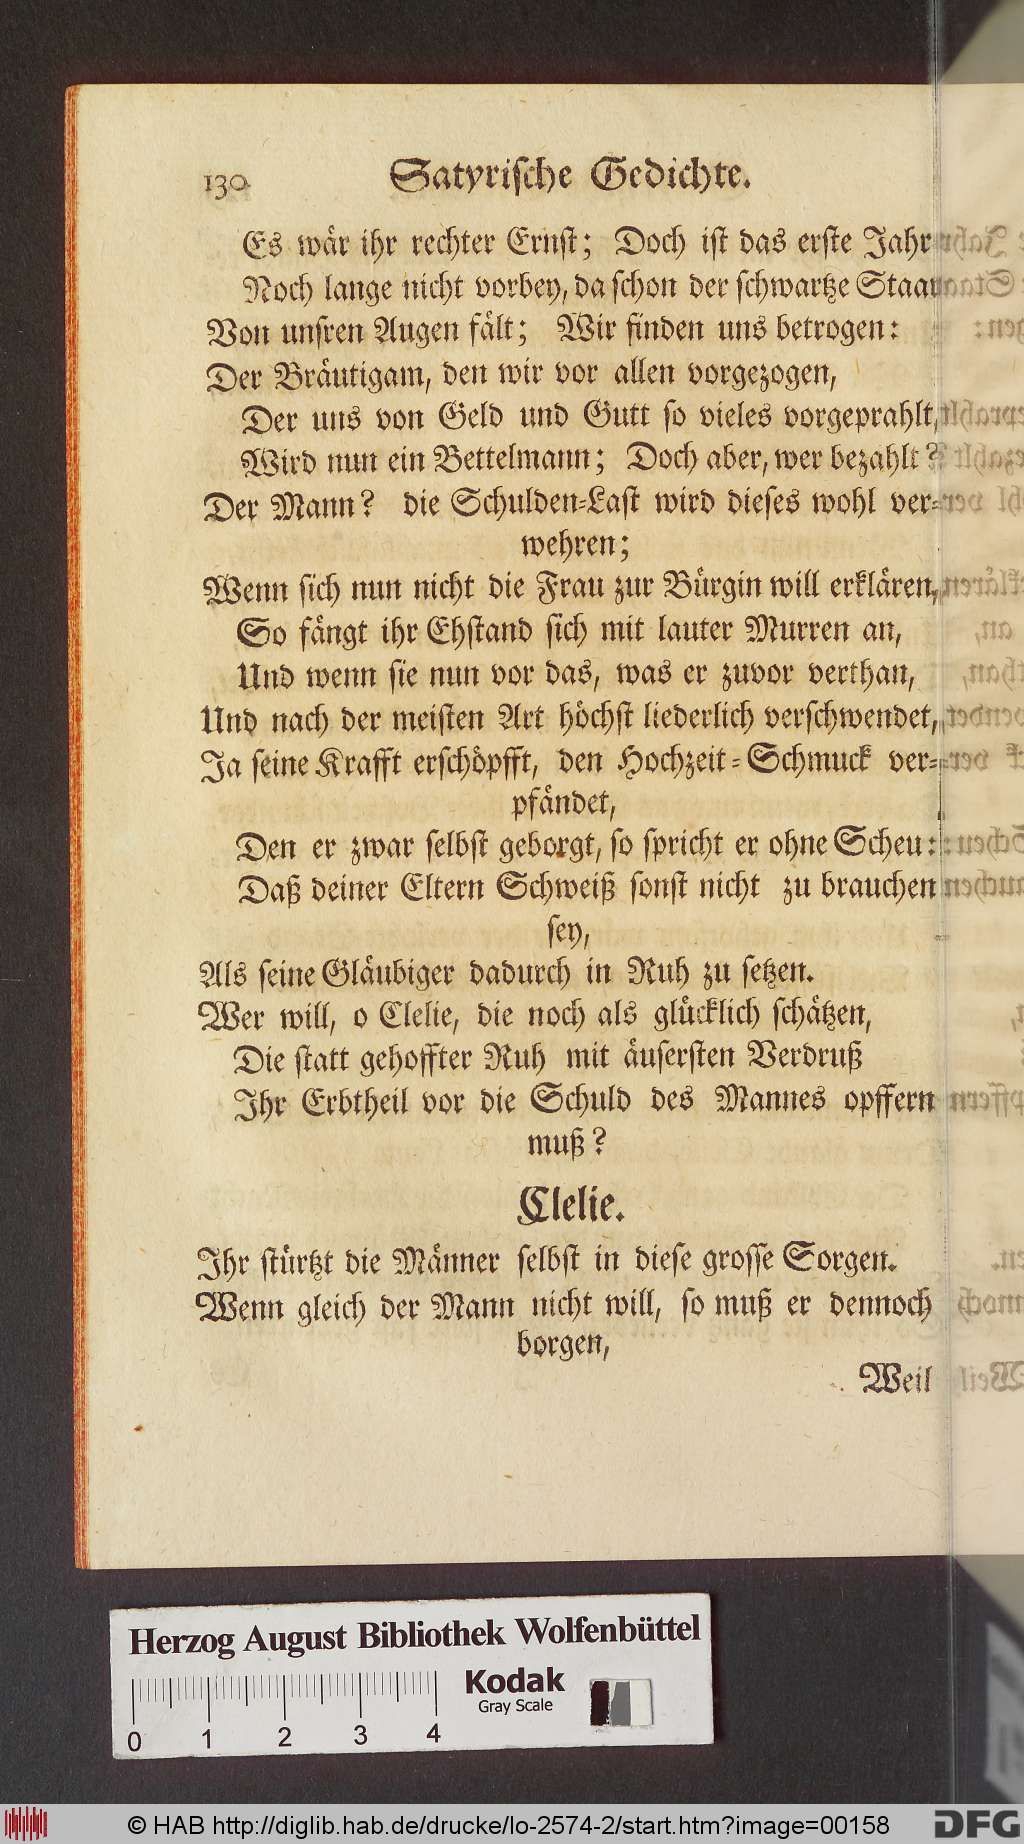 130 Satyrische Gedichte.
Es wär ihr rechter Ernst; Doch ist das erste Jahr
Noch lange nicht vorbey, da schon der schwartze Staar
Von unsren Augen fält; Wir finden uns betrogen:
Der Bräutigam, den wir vor allen vorgezogen,
Der uns von Geld und Gutt so vieles vorgeprahlt,
Wird nun ein Bettelmann; Doch aber, wer bezahlt?
Der Mann? die Schulden-Last wird dieses wohl ver-
wehren;
Wenn sich nun nicht die Frau zur Bürgin will erklären,
So fängt ihr Ehstand sich mit lauter Murren an,
Und wenn sie nun vor das, was er zuvor verthan,
Und nach der meisten Art höchst liederlich verschwendet,
Ja seine Krafft erschöpfft, den Hochzeit-Schmuck ver-
pfändet,
Den er zwar selbst geborgt, so spricht er ohne Scheu:
Daß deiner Eltern Schweiß sonst nicht zu brauchen
sey,
Als seine Gläubiger dadurch in Ruh zu setzen.
Wer will, o Clelie, die noch als glücklich schätzen,
Die statt gehoffter Ruh mit äusersten Verdruß
Ihr Erbtheil vor die Schuld des Mannes opffern
muß?
Clelie.
Ihr stürtzt die Männer selbst in diese grosse Sorgen.
Wenn gleich der Mann nicht will, so muß er dennoch
borgen,
Weil
Herzog August Bibliothek Wolfenbüttel
Kodak
Gray Scale
0 1 2 3 4
© HAB http://diglib.hab.de/drucke/lo-2574-2/start.htm?image=00158
DFG